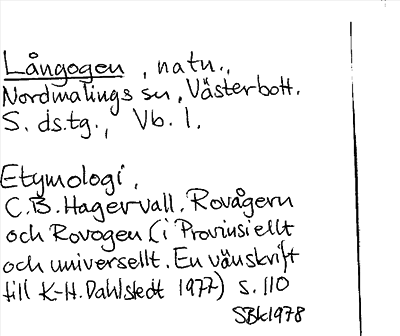 Långogen, natn.,
Nordmalings sn, Västerbott.
S. ds.tg., Vb. l.
Etymologi.
C.B. Hagervall. Rovågern
och Rovogen (i Provinsiellt
och universellt. En vänskrift
till K-H. Dahlstedt 1977) s. 110
SBk1978